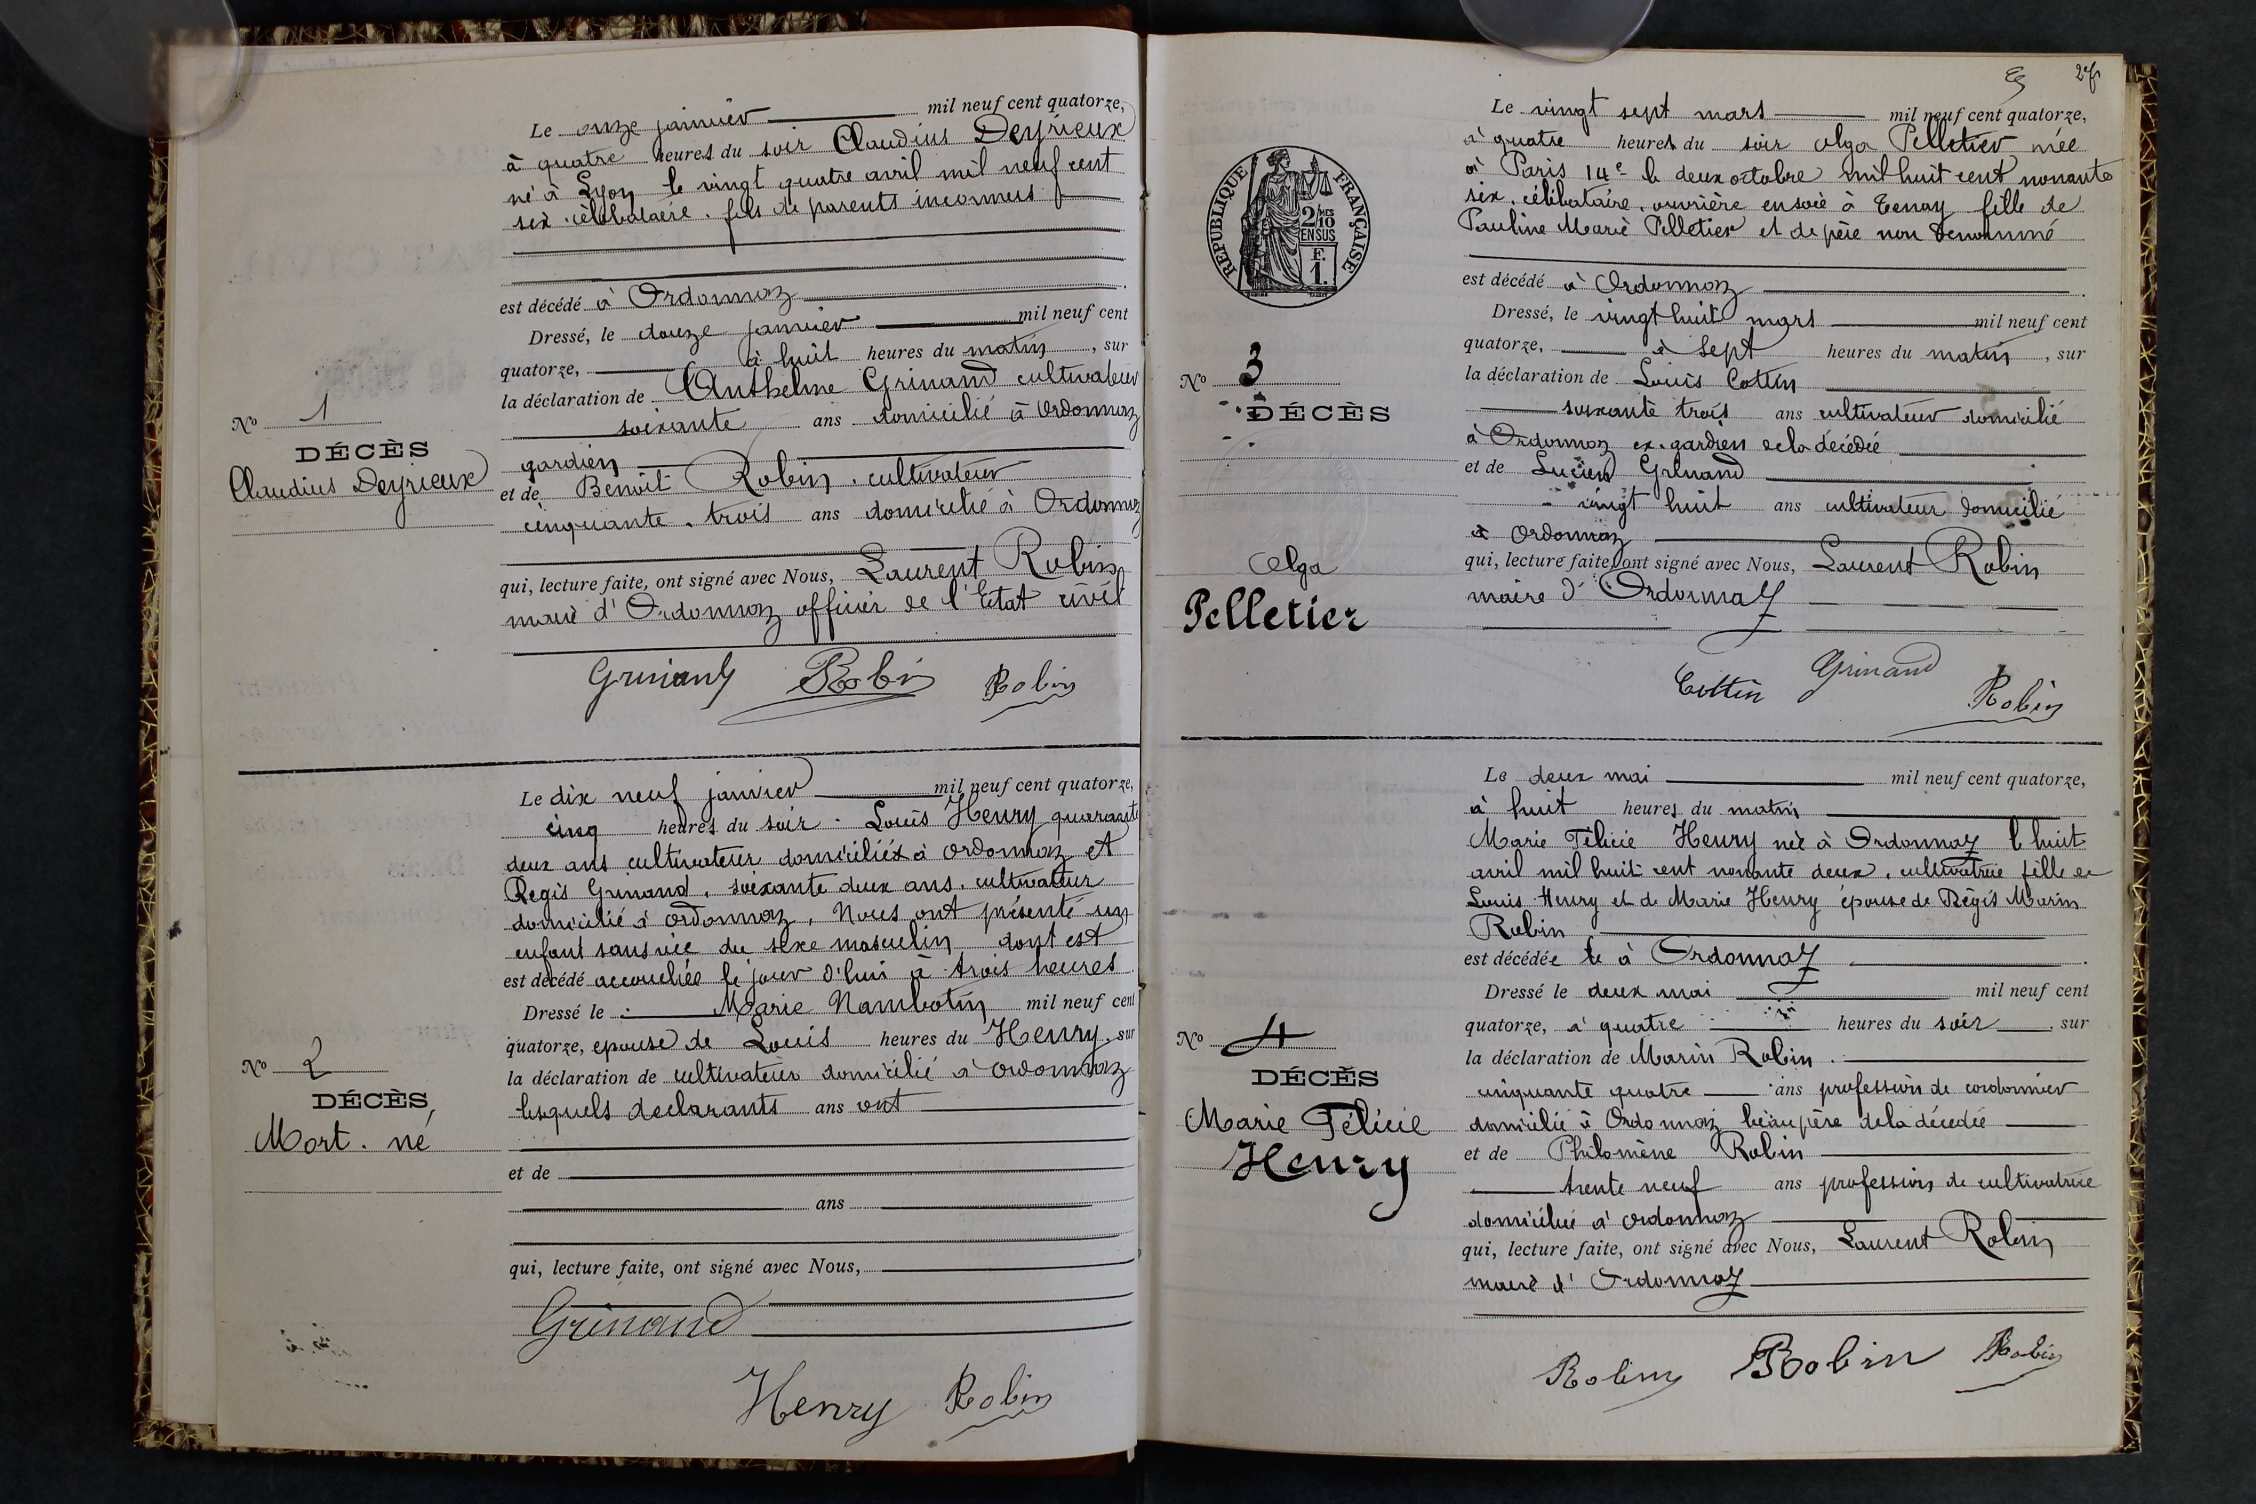 Le onze janvier mil neuf cent quatorze,
à quatre heures du soir Claudius Deyrieux
né à Lyon le vingt quatre avril mil neuf cent
six. célibataire. fils de parents inconnus
est décédé à Ordonnaz
Dressé, le douze janvier mil neuf cent
quatorze, à huit heures du matin, sur
la déclaration de Anthelme Grinand cultivateur
soixante ans domicilié à Ordonnaz
gardien
et de Benoit Robin. cultivateur
cinquante. trois ans domicilié à Ordonnaz
qui, lecture faite, ont signé avec Nous, Laurent Robin
maire d'Ordonnaz officier de l'Etat civil
Grinand Robin Robin
No 1
DÉCÈS
Claudius Deyrieux
Le dix neuf janvier mil neuf cent quatorze,
cinq heures du soir. Louis Henry quarante
deux ans cultivateur domiciliés à Ordonnaz et
Régis Grinand, soixante deux ans. cultivateur
domicilié à Ordonnaz, Nous ont présenté un
enfant sans vie du sexe masculin dont est
est décédé accouchée le jour d'hui à trois heures
Dressé le Marie Nambotin mil neuf cent
quatorze, épouse de Louis heures du Henry, sur
la déclaration de cultivateur domicilié à Ordonnaz
lesquels declarants ans ont
et de
ans
qui, lecture faite, ont signé avec Nous,
Grinand
Henry Robin
No 2
DÉCÈS
Mort. né
27
Le vingt sept mars mil neuf cent quatorze,
à quatre heures du soir Olga Pelletier née
à Paris 14e le deux octobre mil huit cent nonante
six. célibataire. ouvrière en soie à Tenay fille de
Pauline Marie Pelletier et de père non dénommé
est décédé à Ordonnaz
Dressé, le vingt huit mars mil neuf cent
quatorze, à sept heures du matin, sur
la déclaration de Louis Cottin
soixante trois ans cultivateur domicilié
à Ordonnaz ex. gardien de la décédée
et de Lucien Grinand
vingt huit ans cultivateur domicilié
à Ordonnaz
qui, lecture faite, ont signé avec Nous, Laurent Robin
maire d'Ordonnaz
Cottin Grinand Robin
RÉPUBLIQUE FRANÇAISE
2/10 MES
EN SUS
F.
1.
No 3
DÉCÈS
Olga
Pelletier
Le deux mai mil neuf cent quatorze,
à huit heures du matin
Marie Félicie Henry née à Ordonnaz le huit
avril mil huit cent nonante deux, cultivatrice fille de
Louis Henry et de Marie Henry épouse de Régis Marin
Robin
est décédée à Ordonnaz
Dressé le deux mai mil neuf cent
quatorze, à quatre heures du soir, sur
la déclaration de Marin Robin.
cinquante quatre ans profession de cordonnier
domicilié à Ordonnaz beau père de la décédée
et de Philomène Robin
trente neuf ans profession de cultivatrice
domiciliée à Ordonnaz
qui, lecture faite, ont signé avec Nous, Laurent Robin
maire d'Ordonnaz
Robin Robin Robin
No 4
DÉCÈS
Marie Félicie
Henry